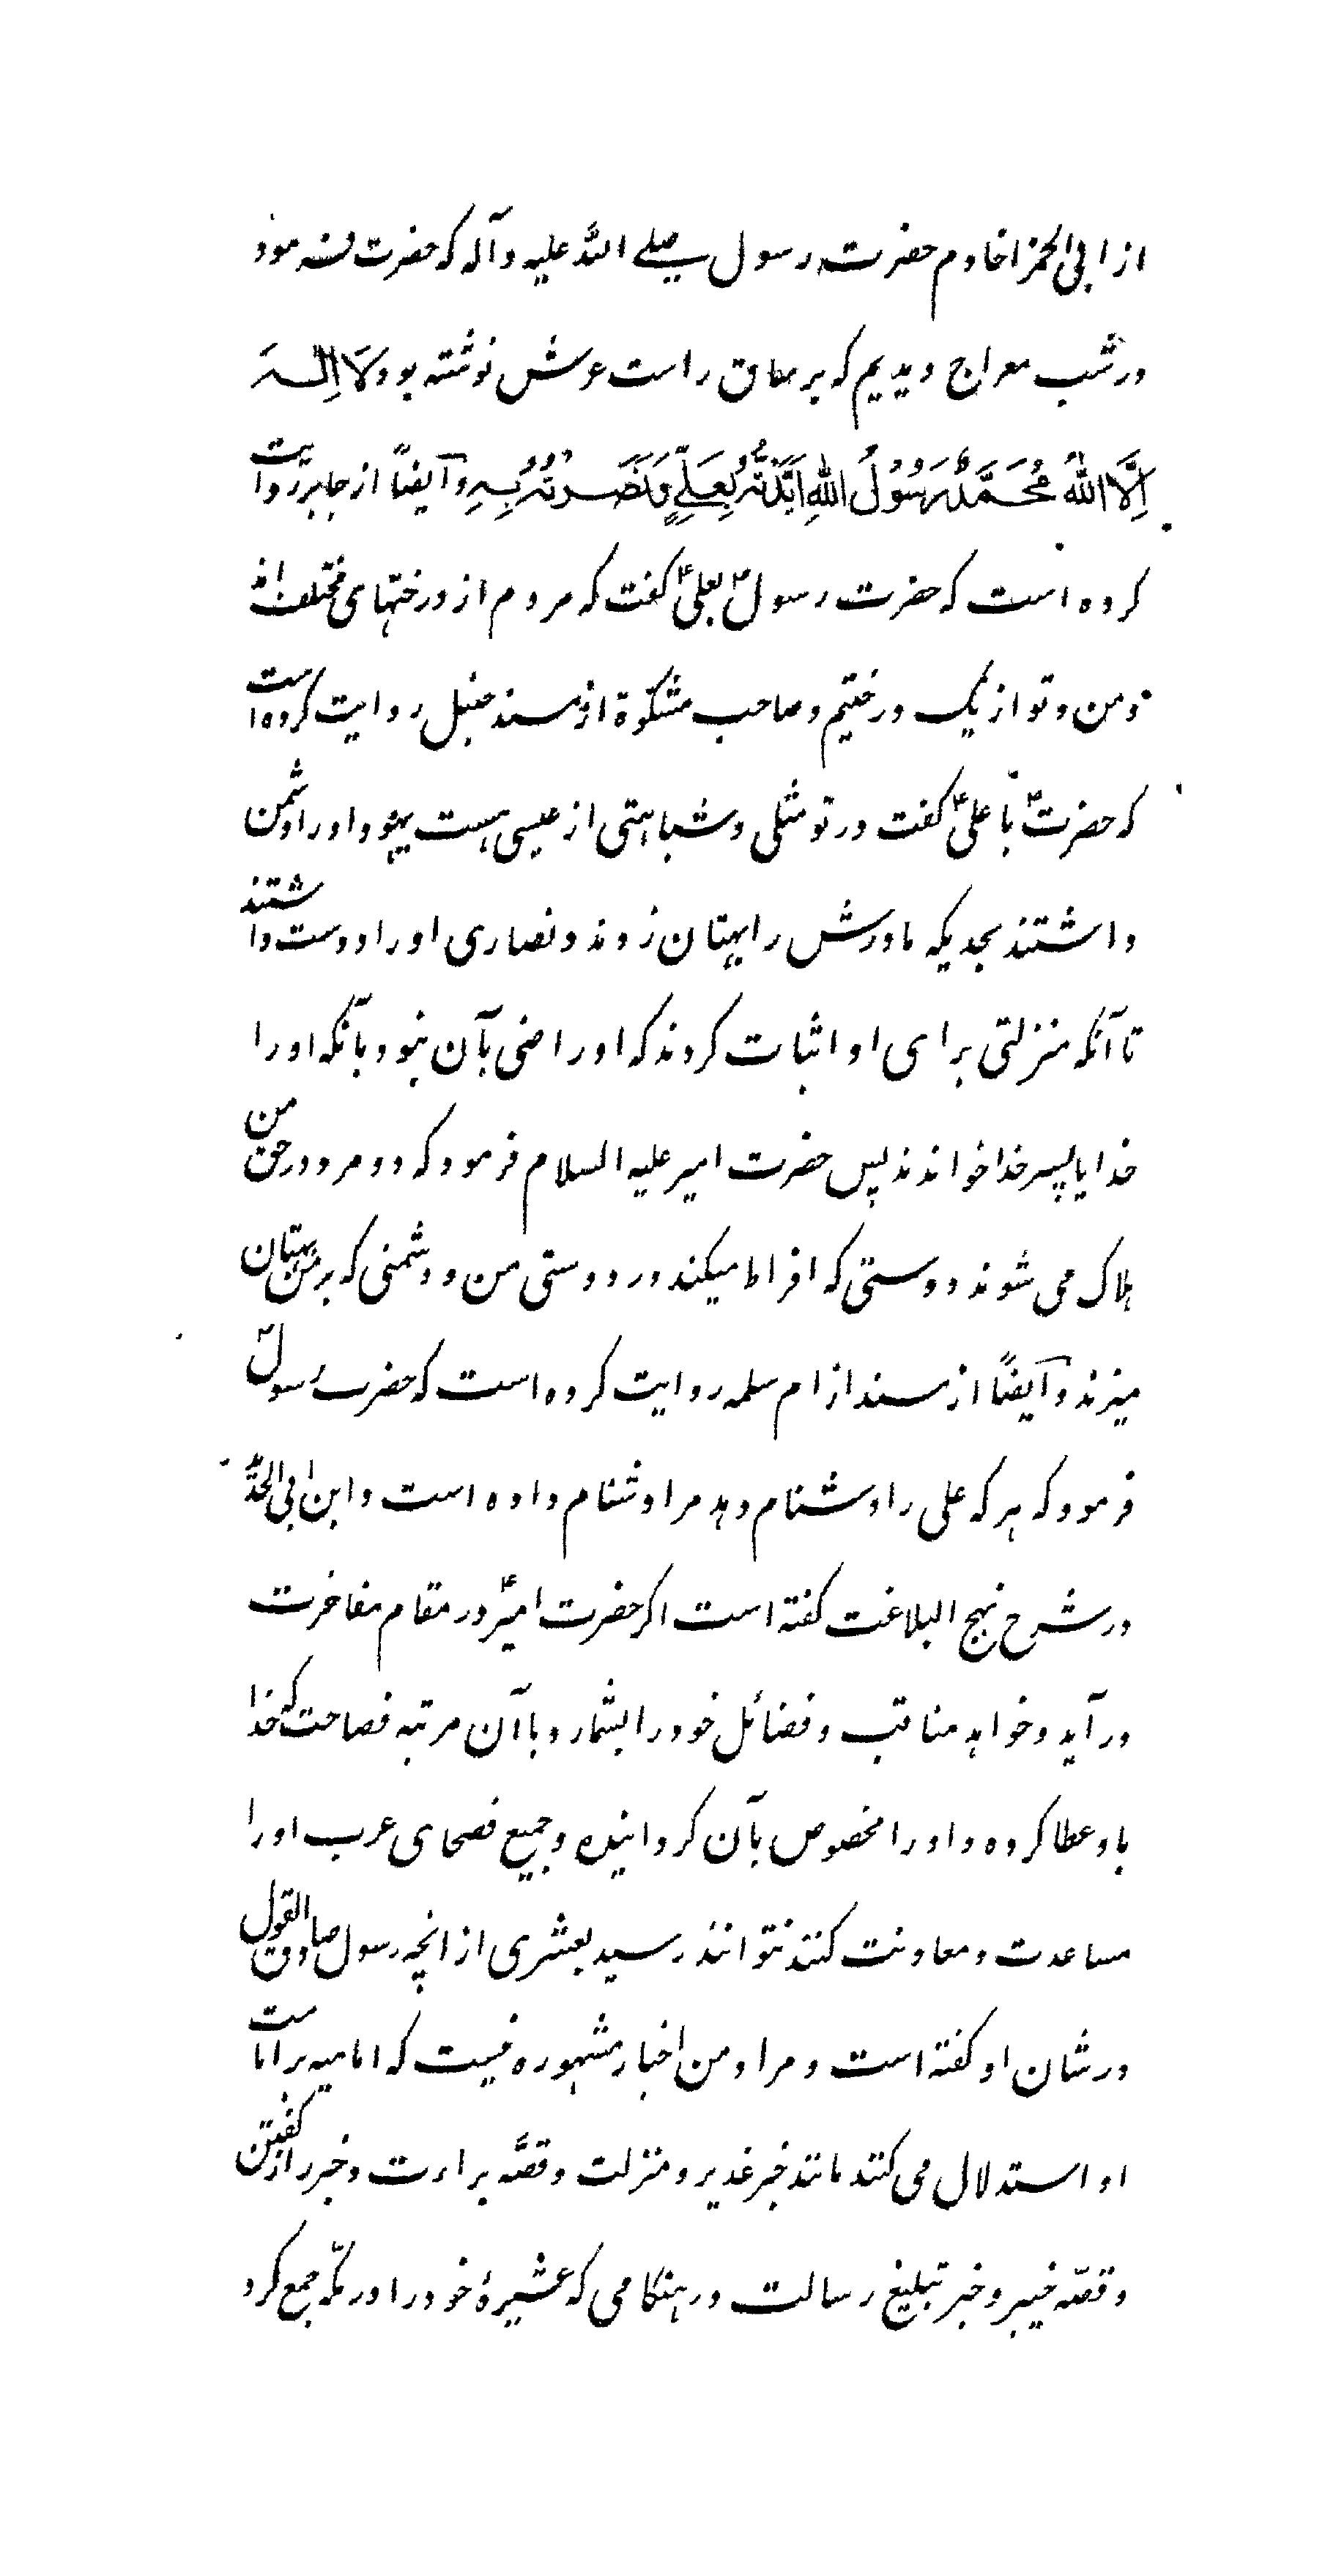 از ابی الحمرا خادم حضرت رسول صلے الله علیه و آله که حضرت فرمود
در شب معراج دیدیم که بر ساق راست عرش نوشته بود لَا اِلٰهَ
اِلَّا اللهُ مُحَمَّدٌ رَسُوْلُ اللهِ اَیَّدْتُهُ بِعَلِیٍّ وَنَصَرْتُهُ بِهِ و ایضاً از جابر روایت
کرده است که حضرت رسولؐ بعلیؑ گفت که مردم از درختهای مختلف اند
و من و تو از یک درختیم و صاحب مشکوة از مسند حنبل روایت کرده است
که حضرتؐ با علیؑ گفت در تو مثلی و شباهتی از عیسی هست یهود او را دشمن
داشتند بحدیکه مادرش را بهتان زدند و نصاری او را دوست داشتند
تا آنکه منزلتی برای او اثبات کردند که او راضی بآن نبود بآنکه او را
خدا یا پسر خدا خواندند پس حضرت امیر علیه السلام فرمود که دو مرد در حق من
هلاک می شوند دوستی که افراط میکند در دوستی من و دشمنی که بر من بهتان
میزند و ایضاً از مسند از ام سلمه روایت کرده است که حضرت رسولؐ
فرمود که هر که علی را دشنام دهد مرا دشنام داده است و ابن ابی الحدید
در شرح نهج البلاغت گفته است اگر حضرت امیرؑ در مقام مفاخرت
در آید و خواهد مناقب و فضائل خود را بشمارد با آن مرتبه فصاحت که خدا
باو عطا کرده و او را مخصوص بآن گردانیده و جمیع فصحای عرب او را
مساعدت و معاونت کنند نتوانند رسید بعشری از انچه رسول صادق القول
در شان او گفته است و مراد من اخبار مشهوره نیست که امامیه بر امامت
او استدلال می کنند مانند خبر غدیر و منزلت و قصّه براءت و خبر راز گفتن
و قصّه خیبر و خبر تبلیغ رسالت در هنگامی که عشیرهٔ خود را در مکّه جمع کرد